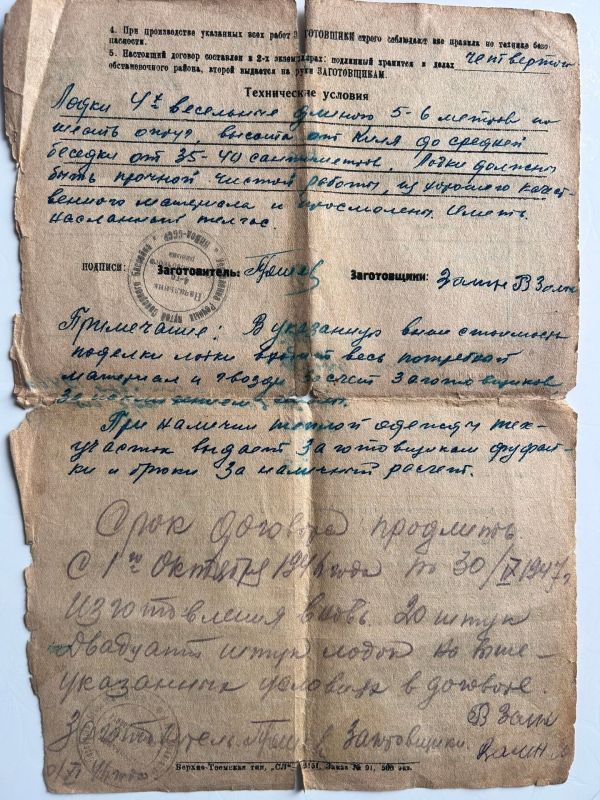 4. При производстве указанных всех работ ЗАГОТОВЩИКИ строго соблюдают все правила по технике безо-
пасности.
5. Настоящий договор составлен в 2-х экземплярах: подлинный хранится в делах четвертого
обстановочного района, второй выдается на руки ЗАГОТОВЩИКАМ.
Технические условия
Лодки 4х весельные длиною 5-6 метров по
шесть опруг, высота от киля до средней
беседки от 35-40 сантиметров. Лодки должны
быть прочной чистой работы, из хорошего качест-
венного материала и просмолены. Иметь
ПОДПИСИ: Заготовитель: Заготовщики: Залин В Залин
Примечание: В указанную выше стоимость
поделки лодки входит весь потребной
материал и гвозди счет Заготовщиков
При наличии теплой одежды тех-
участок выдает Заготовщикам фуфай-
ки и брюки за наличный расчет.
Срок договора продлить
С 1го Октября 1946 года по 30/IV 1947 г
Изготовления вновь 20 штук
Двадцать штук лодок на выше-
указанных условиях в договоре.
В Залин
Заготовитель Заготовщики Залин
Верхне-Тоемская тип. „СЛ" Заказ № 91, 500 экз.